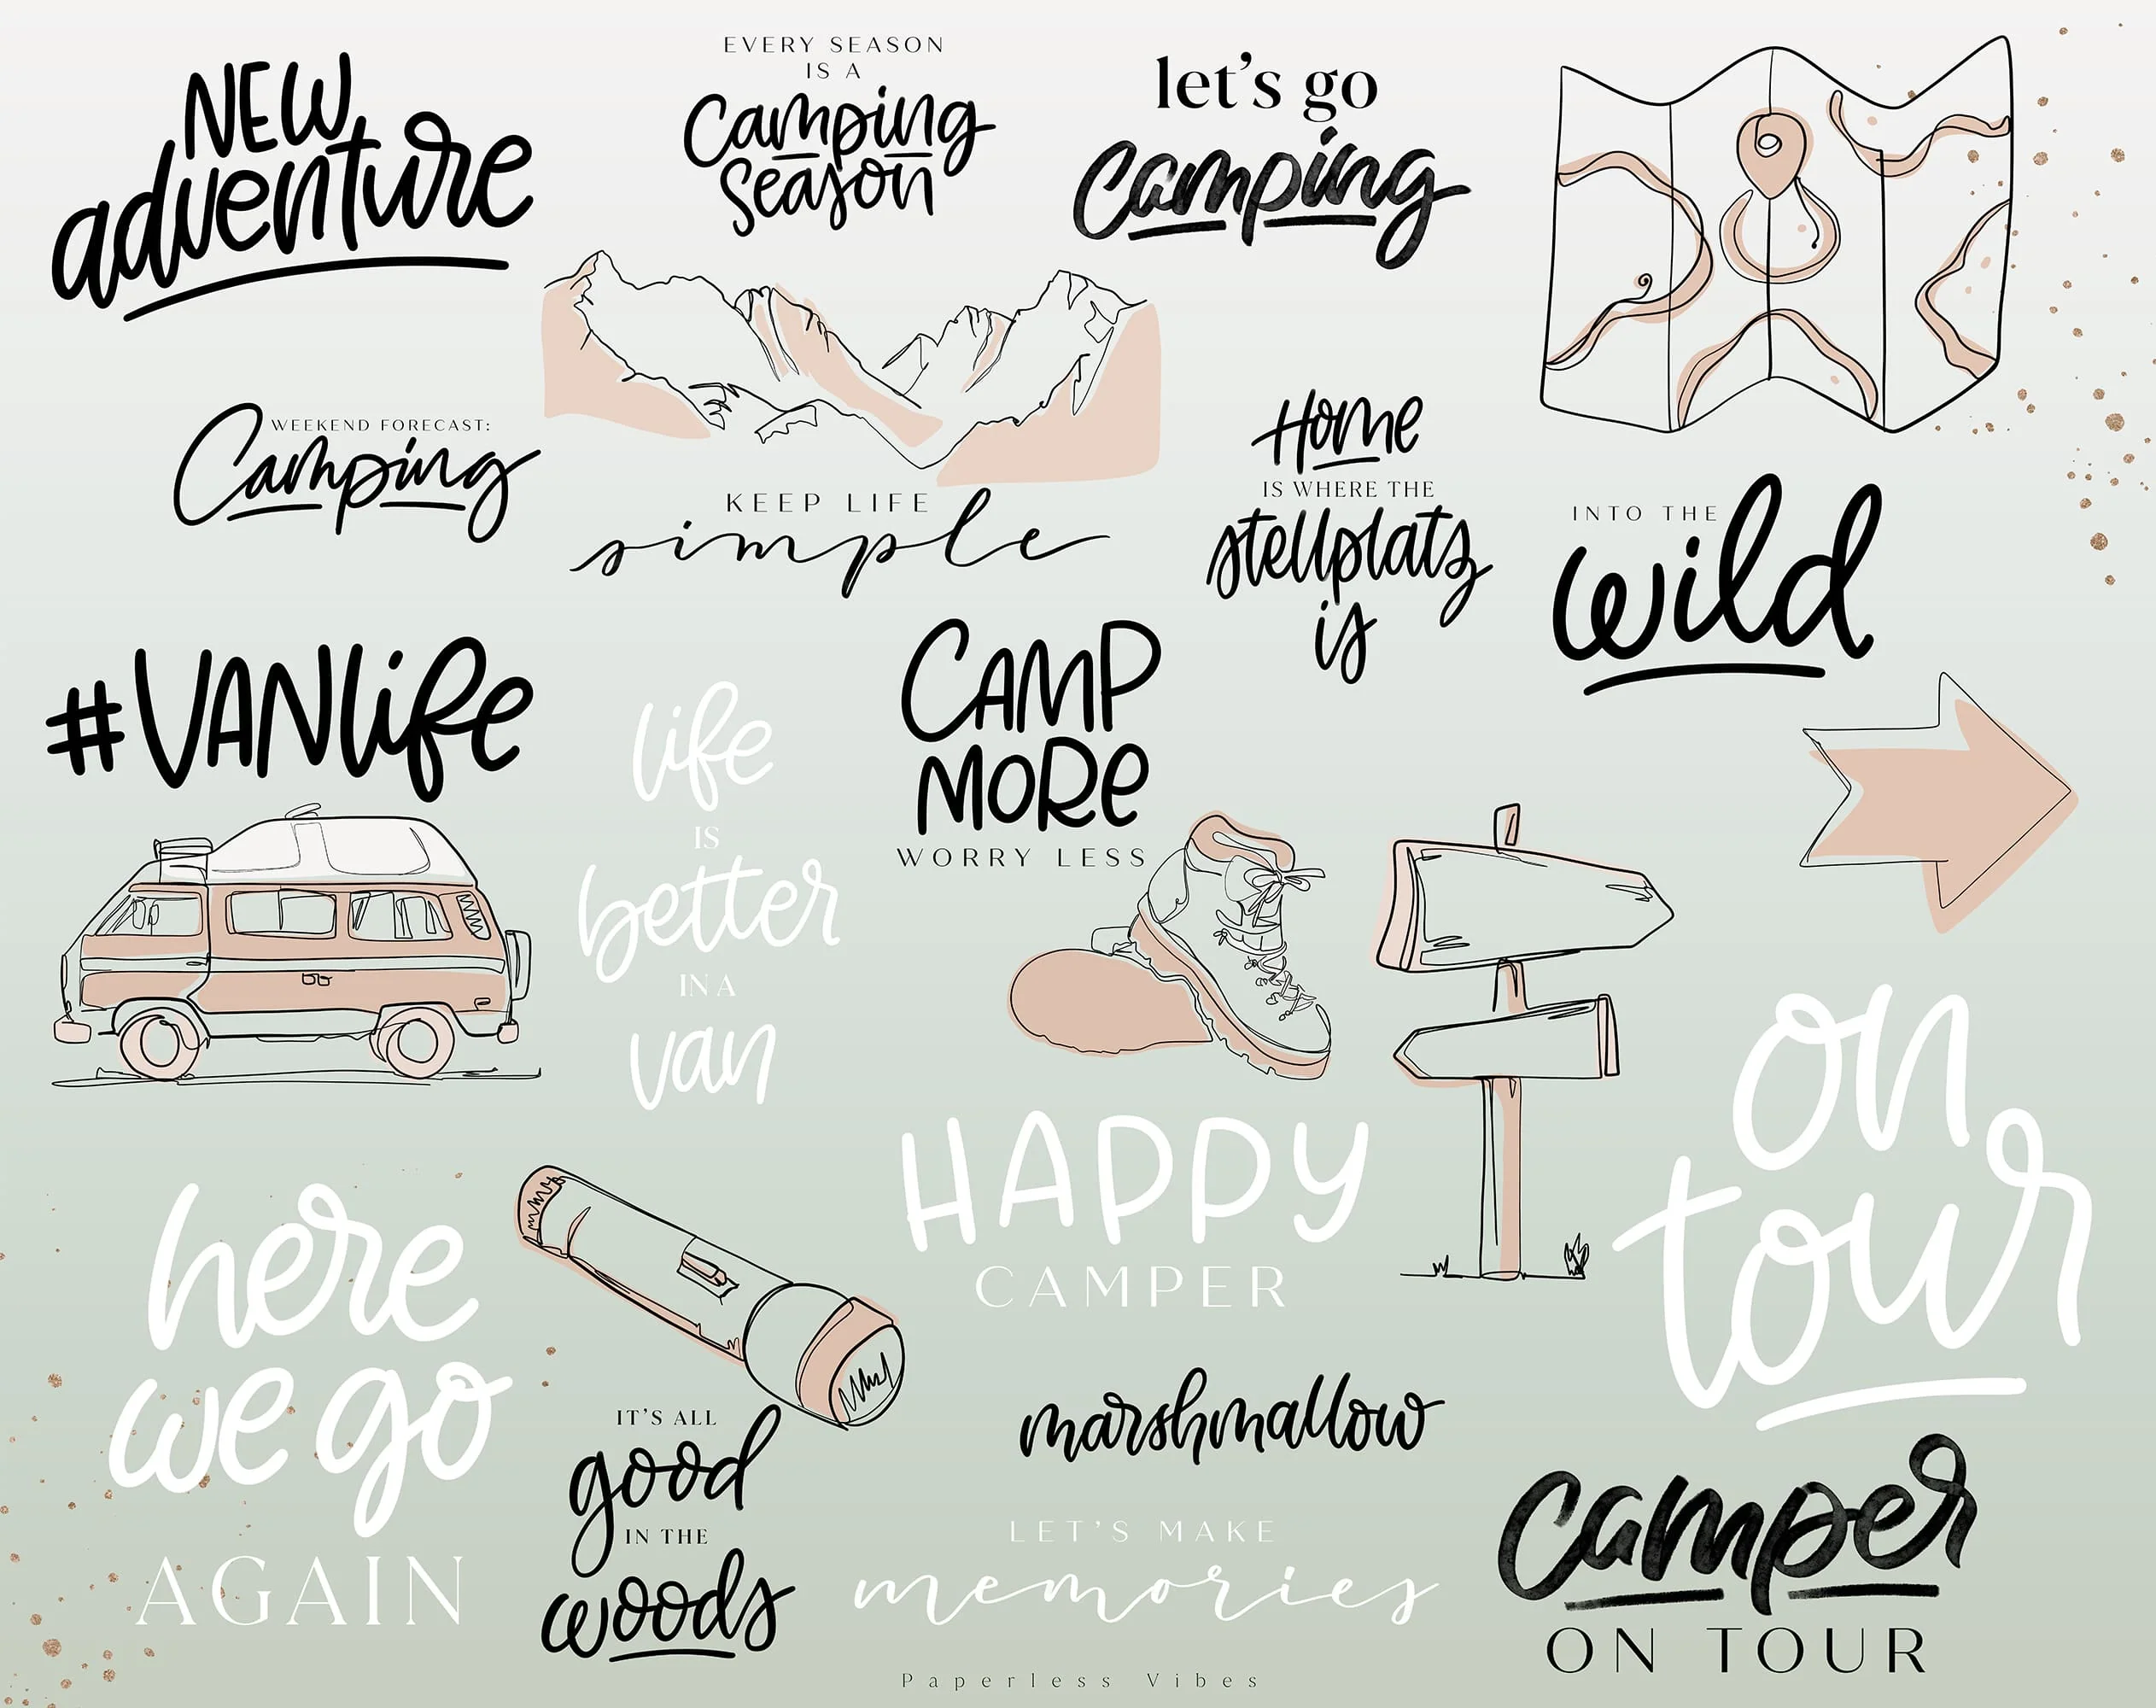 NEW
adventure
EVERY SEASON
IS A
Camping
Season
let's go
Camping
WEEKEND FORECAST:
Camping
KEEP LIFE
simple
Home
IS WHERE THE
stellplatz
is
INTO THE
wild
#VANlife
life
IS
better
IN A
van
CAMP
MORE
WORRY LESS
HAPPY
CAMPER
on
tour
here
we go
AGAIN
IT'S ALL
good
IN THE
woods
marshmallow
LET'S MAKE
memories
camper
ON TOUR
Paperless Vibes